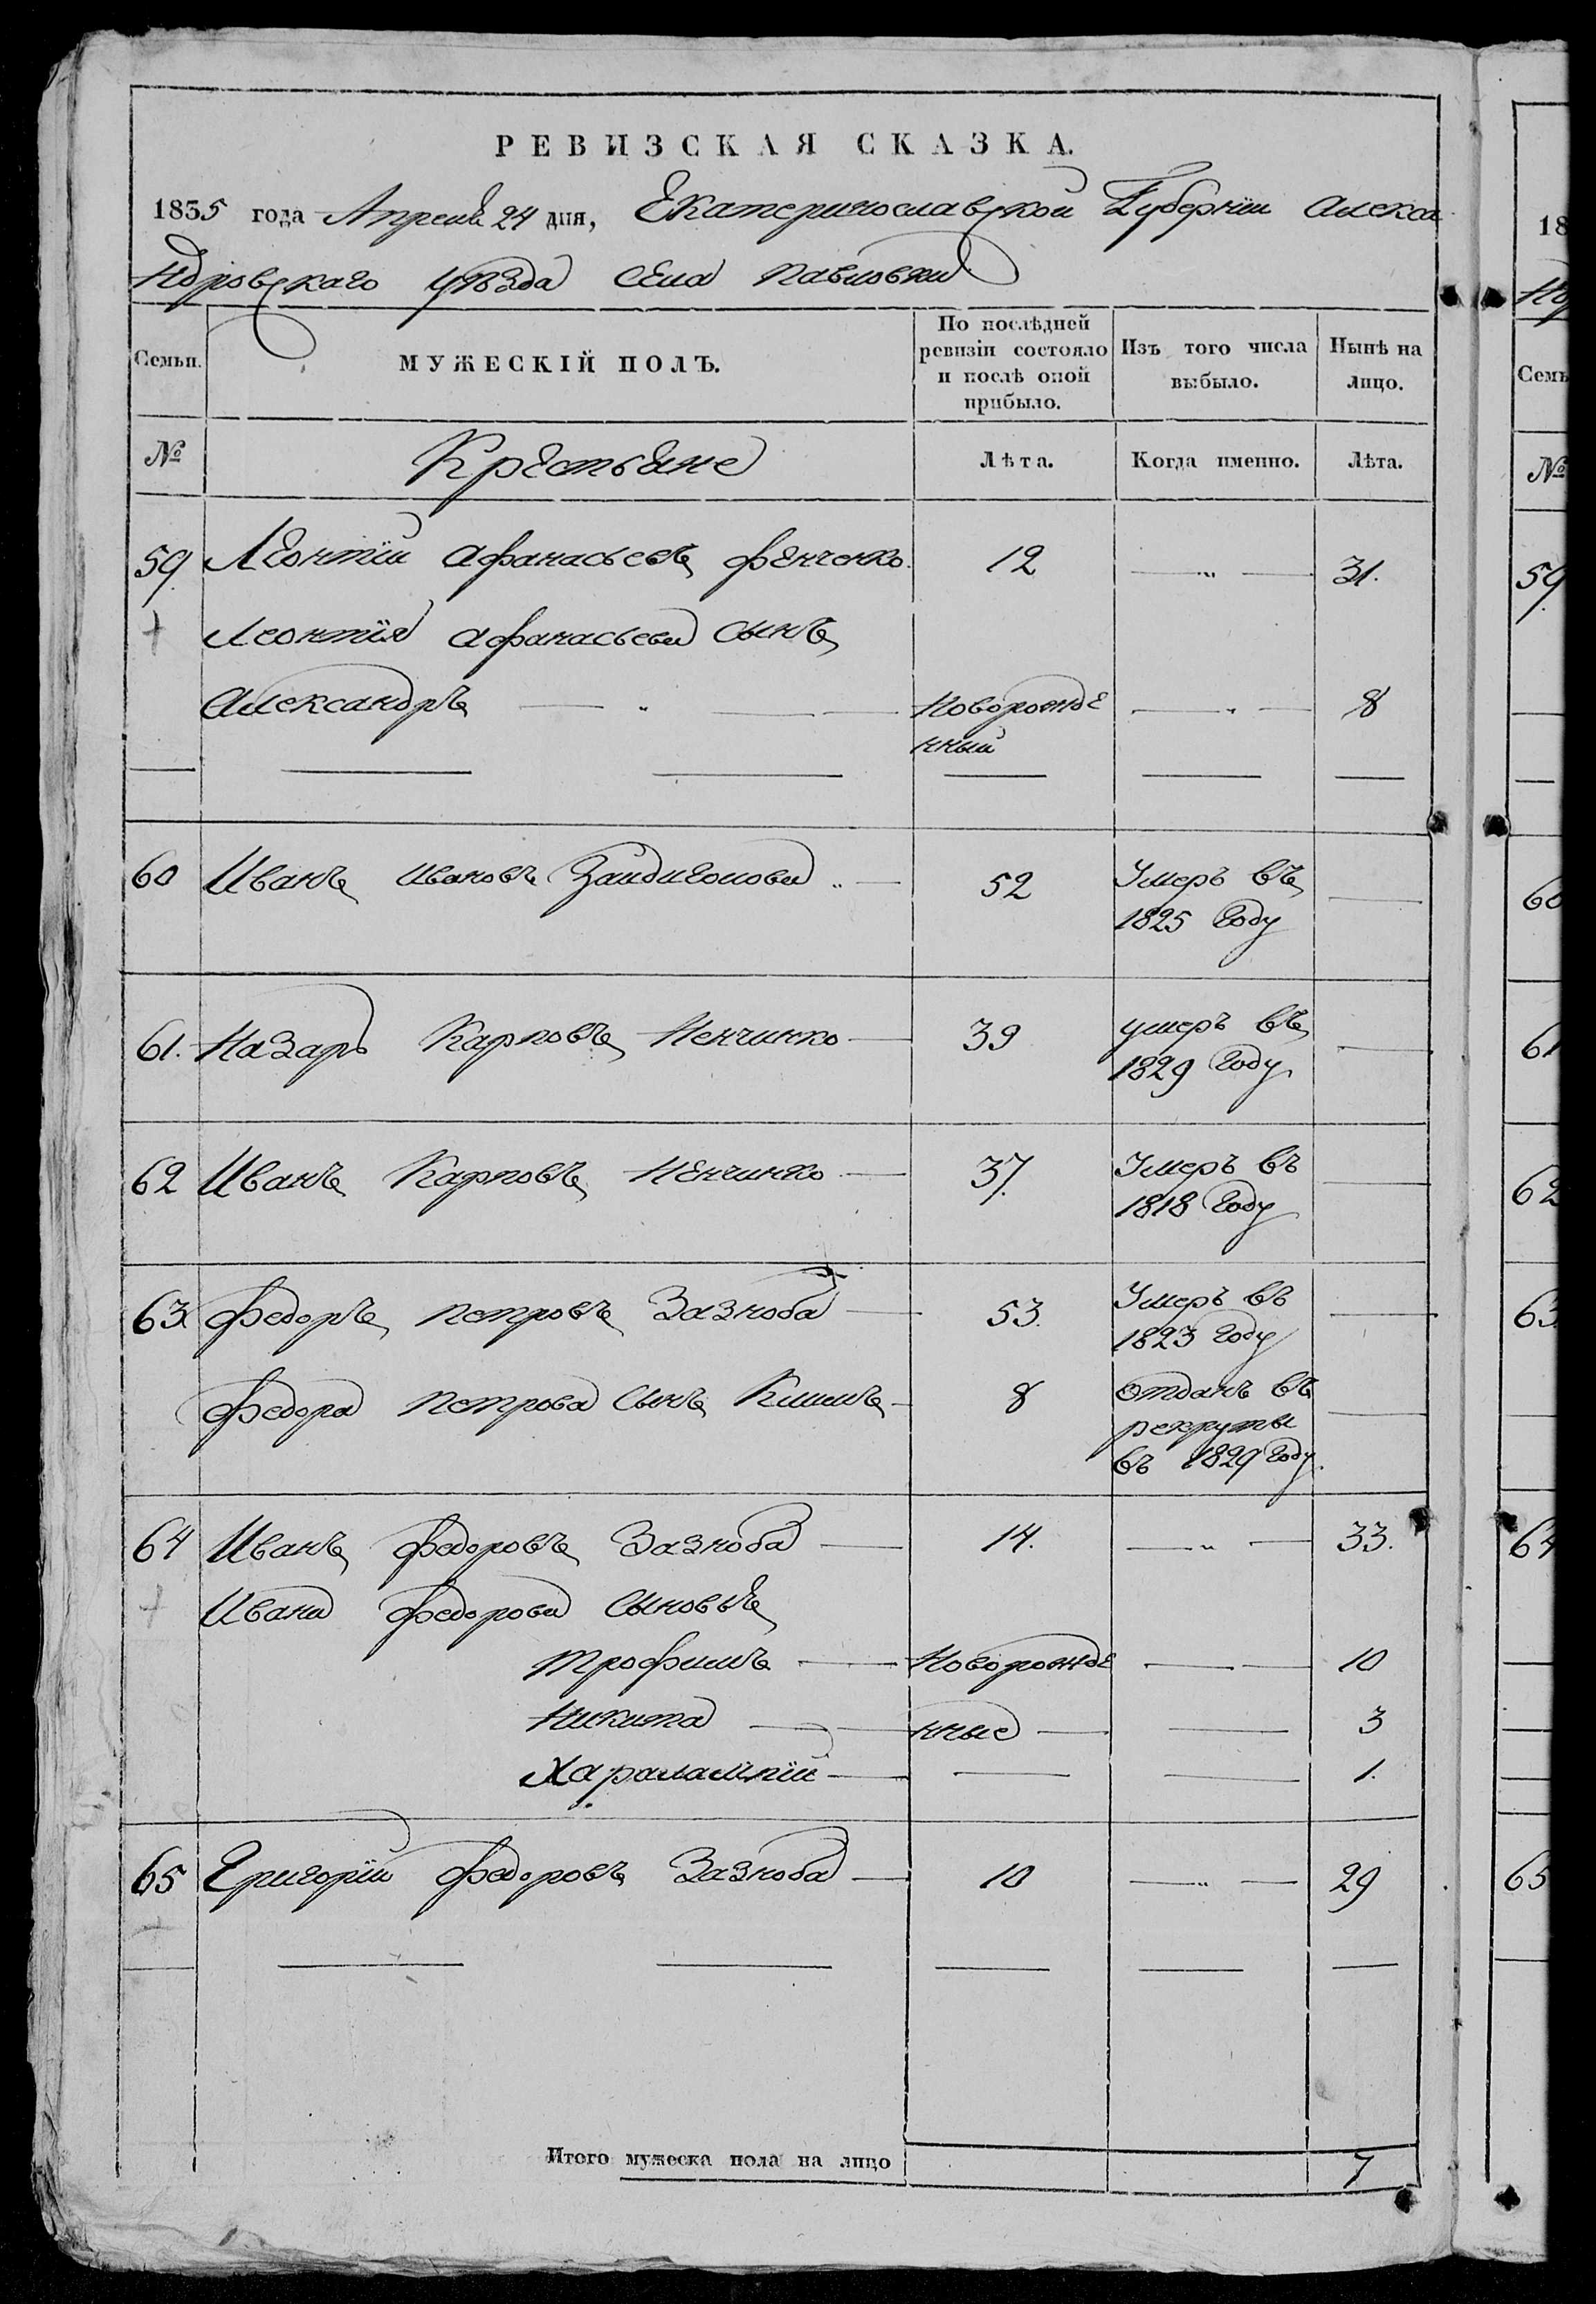 РЕВИЗСКАЯ СКАЗКА.
1835 года Апреля 24 дня, Екатеринославской Губерніи Алекса
ндровскаго уѣзда села Павловки
Семьи. МУЖЕСКІЙ ПОЛЪ. По послѣдней ревизіи состояло и послѣ оной прибыло. Изъ того числа выбыло. Нынѣ на лицо.
№ Крестьяне Лѣта. Когда именно. Лѣта.
59. Леонтій Афанасьевъ Фенченко. 12 — " — 31.
Леонтія Афанасьева сынъ
Александръ — " — Новорожде — " — 8
нный
60 Иванъ Ивановъ 52 Умеръ въ
1825 году
61. Назаръ Карповъ Ненчинко — 39 умеръ въ
1829 году
62 Иванъ Карповъ Ненчинко — 37. Умеръ въ
1818 году
63 Федоръ Петровъ Зазноба — 53. Умеръ въ
1823 году
Федора Петрова сынъ Климъ — 8 отданъ въ
рекруты
въ 1829 году.
64 Иванъ Федоровъ Зазноба — 14. — " — 33.
Ивана Федорова сыновья
Трофимъ — Новорожде — 10
Никита — нные — 3
Харалампій — 1.
65 Григорій Федоровъ Зазноба — 10 — " — 29
Итого мужеска пола на лицо 7
18
Семь
№
59
60
61
62
63
64
65